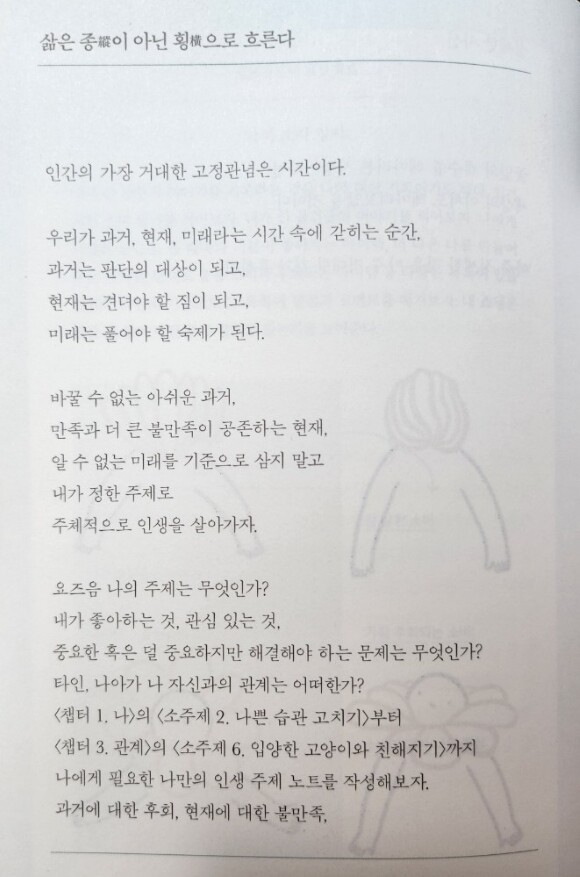 삶은 종縱이 아닌 횡橫으로 흐른다
인간의 가장 거대한 고정관념은 시간이다.
우리가 과거, 현재, 미래라는 시간 속에 갇히는 순간,
과거는 판단의 대상이 되고,
현재는 견뎌야 할 짐이 되고,
미래는 풀어야 할 숙제가 된다.
바꿀 수 없는 아쉬운 과거,
만족과 더 큰 불만족이 공존하는 현재,
알 수 없는 미래를 기준으로 삼지 말고
내가 정한 주제로
주체적으로 인생을 살아가자.
요즈음 나의 주제는 무엇인가?
내가 좋아하는 것, 관심 있는 것,
중요한 혹은 덜 중요하지만 해결해야 하는 문제는 무엇인가?
타인, 나아가 나 자신과의 관계는 어떠한가?
〈챕터 1. 나〉의 〈소주제 2. 나쁜 습관 고치기〉부터
〈챕터 3. 관계〉의 〈소주제 6. 입양한 고양이와 친해지기〉까지
나에게 필요한 나만의 인생 주제 노트를 작성해보자.
과거에 대한 후회, 현재에 대한 불만족,